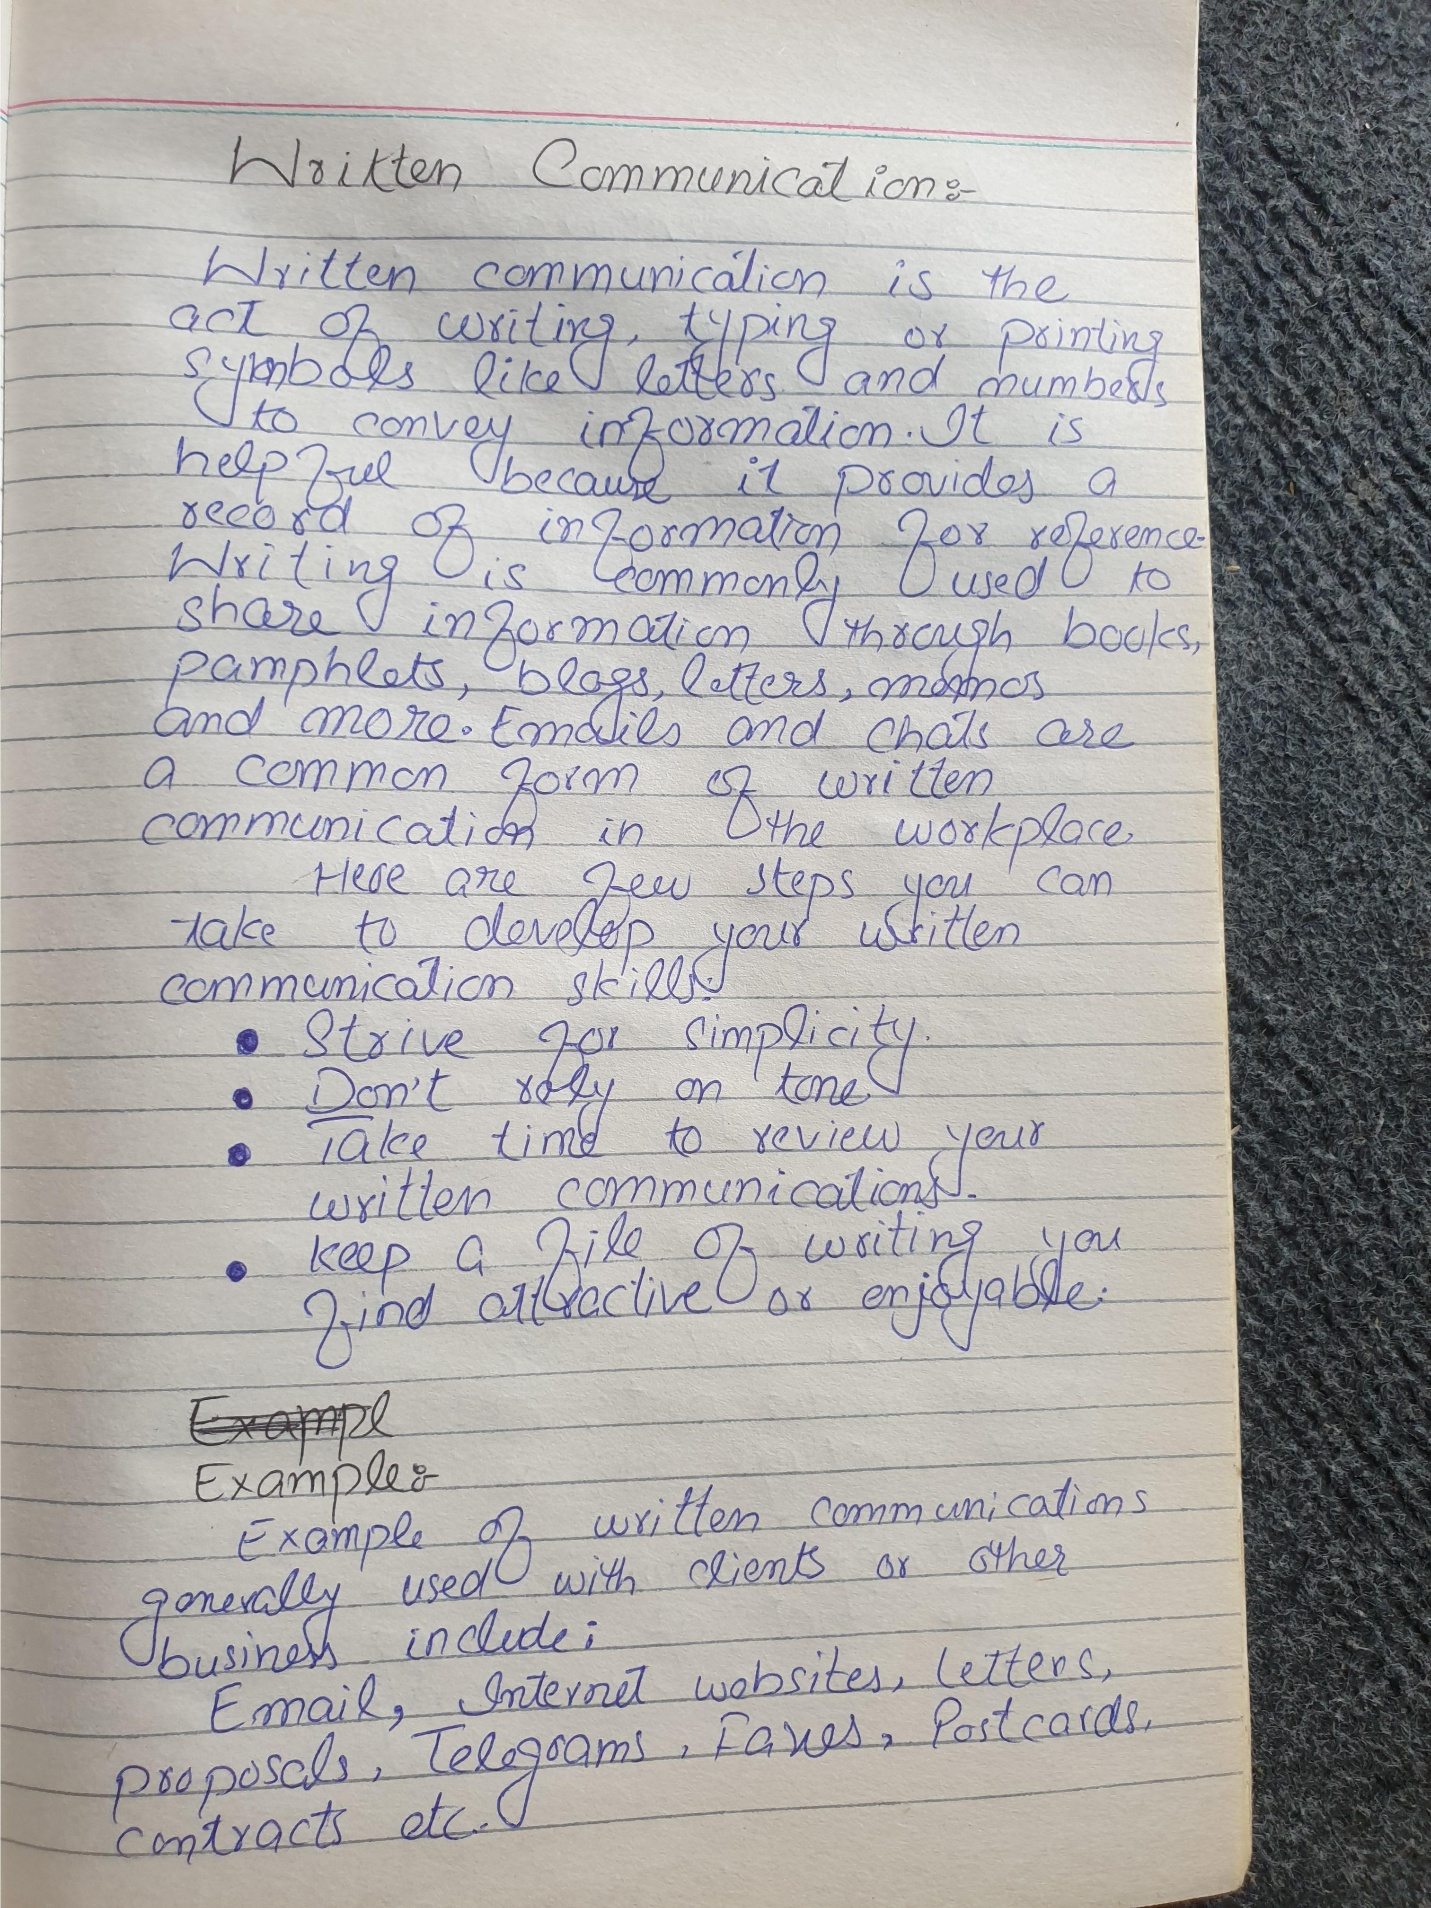 Written Communication:-
Written communication is the
act of writing, typing or printing
symbols like letters and numbers
to convey information. It is
helpful because it provides a
record of information for reference.
Writing is commonly used to
share information through books,
pamphlets, blogs, letters, memos
and more. Emails and chats are
a common form of written
communication in the workplace.
Here are few steps you can
take to develop your written
communication skills:
• Strive for simplicity.
• Don't rely on tone
• Take time to review your
written communications.
• Keep a file of writing you
find attractive or enjoyable.
Exampl
Example:-
Example of written communications
generally used with clients or other
business include;
Email, Internet websites, Letters,
proposals, Telegrams, Faxes, Postcards,
contracts etc.